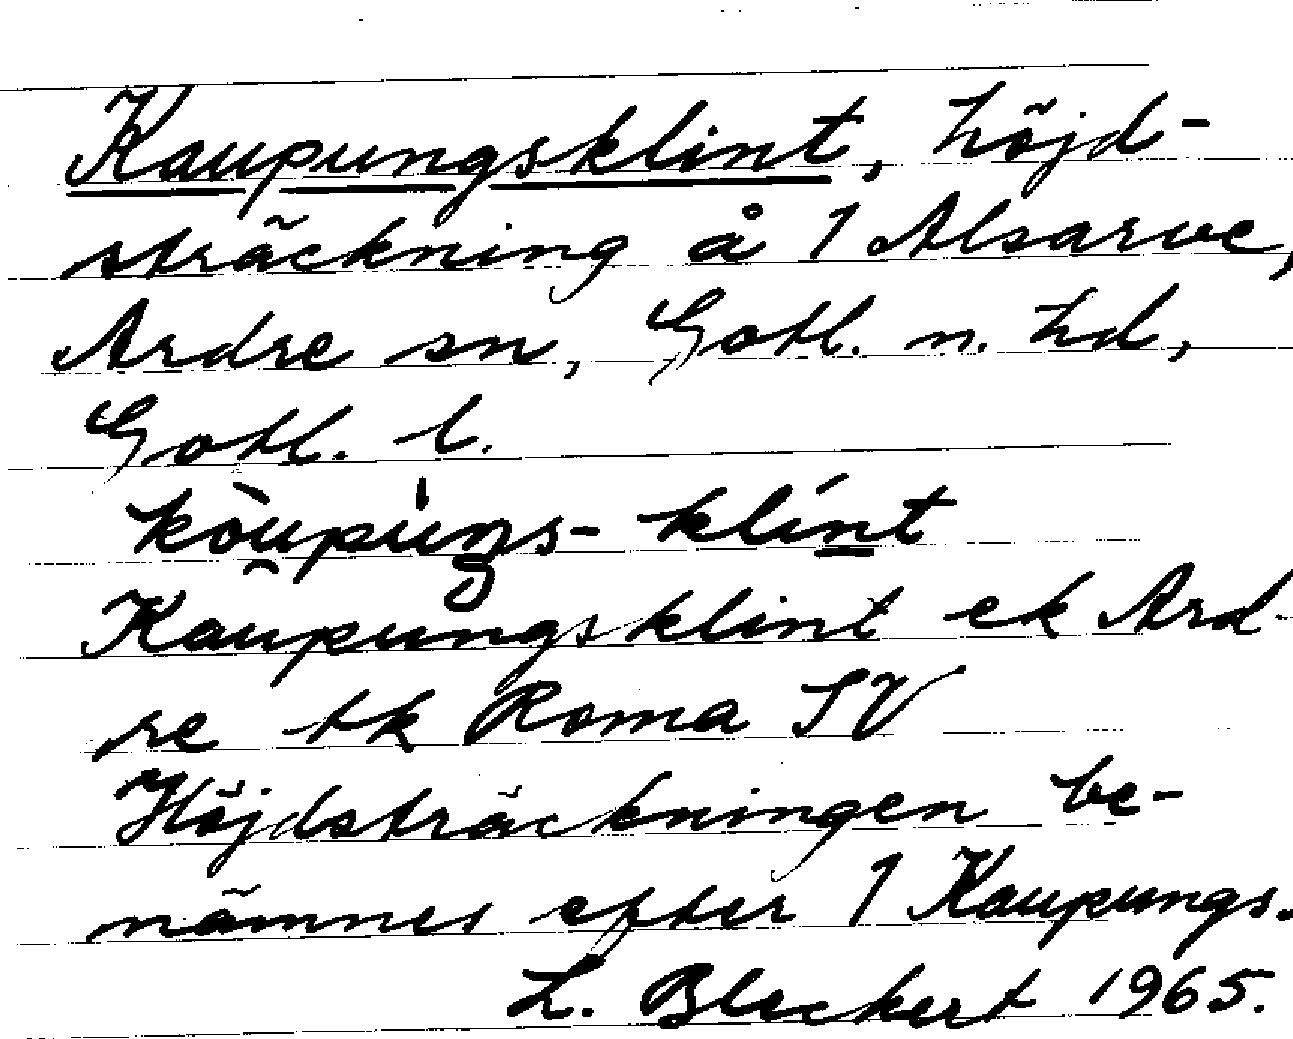 Kaupungsklint, höjd-
sträckning å 1 Alsarve,
Ardre sn, Gotl. n. hd,
Gotl. l.
kòu̯pùŋs- klínt
Kaupungsklint ek Ard-
re tk Roma SV
Höjdsträckningen be-
nämnes efter 1 Kaupungs.
L. Bleckert 1965.